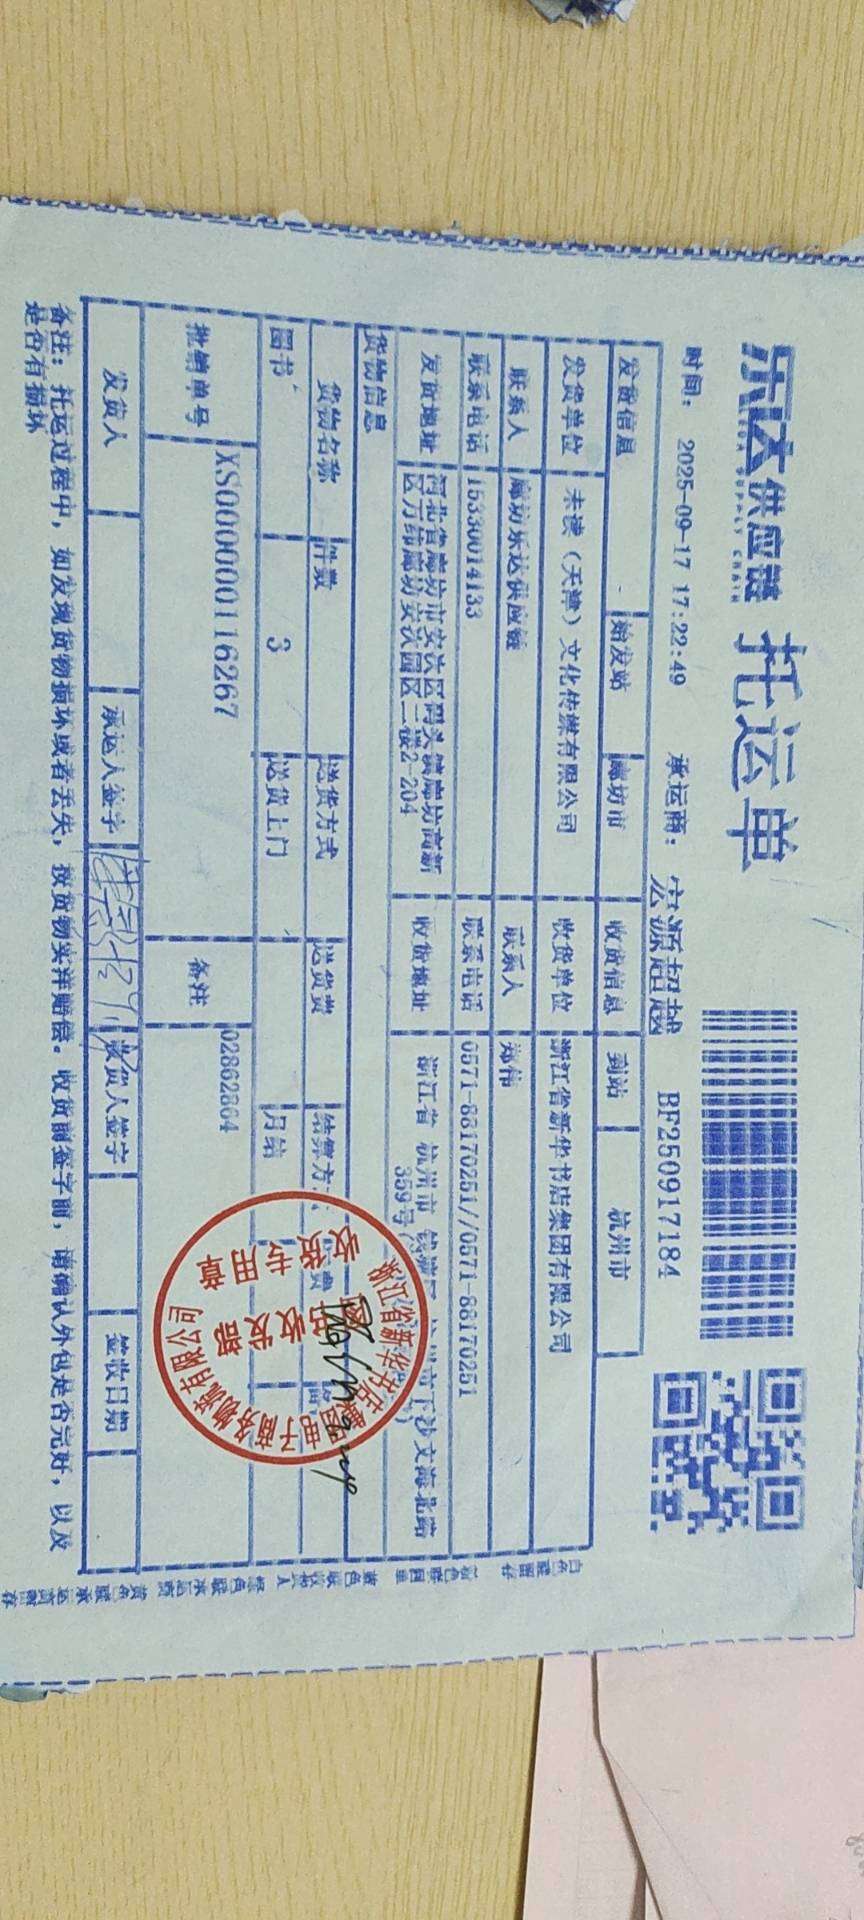 乐达供应链 托运单
LEDA SUPPLY CHAIN
时间： 2025-09-17 17:22:49 承运商： 宏源超越 BF250917184
发货信息 始发站 廊坊市 收货信息 到站 杭州市
发货单位 未读（天津）文化传媒有限公司 收货单位 浙江省新华书店集团有限公司
联系人 廊坊乐达供应链 联系人 郑伟
联系电话 15330014133 联系电话 0571-88170251//0571-88170251
发货地址 河北省廊坊市安次区码头镇廊坊高新
区万纬廊坊安次园区二楼2-204
收货地址 浙江省 杭州市 下沙文海北路
359号
货物信息
货物名称 件数 送货方式 送货费 结算方
图书 3 送货上门 月结
批销单号 XS0000000116267 备注 02862864
发货人 承运人签字 收货人签字 签收日期
备注：托运过程中，如发现货物损坏或者丢失，按货物实洋赔偿。收货前签字前，请确认外包是否完好，以及
是否有损坏
浙江省新华书店集团电子商务物流有限公司
收发部
收货专用章